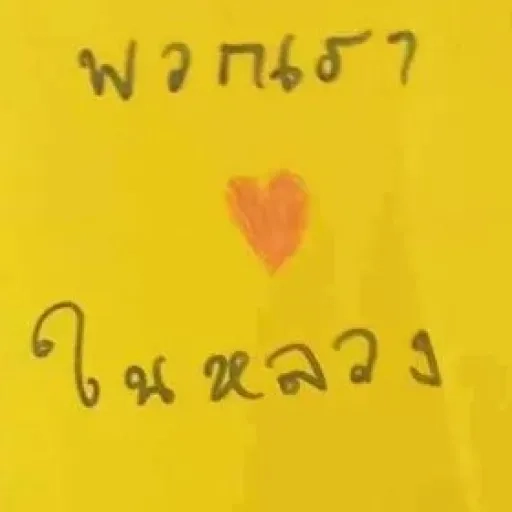 พวกเรา
ในหลวง